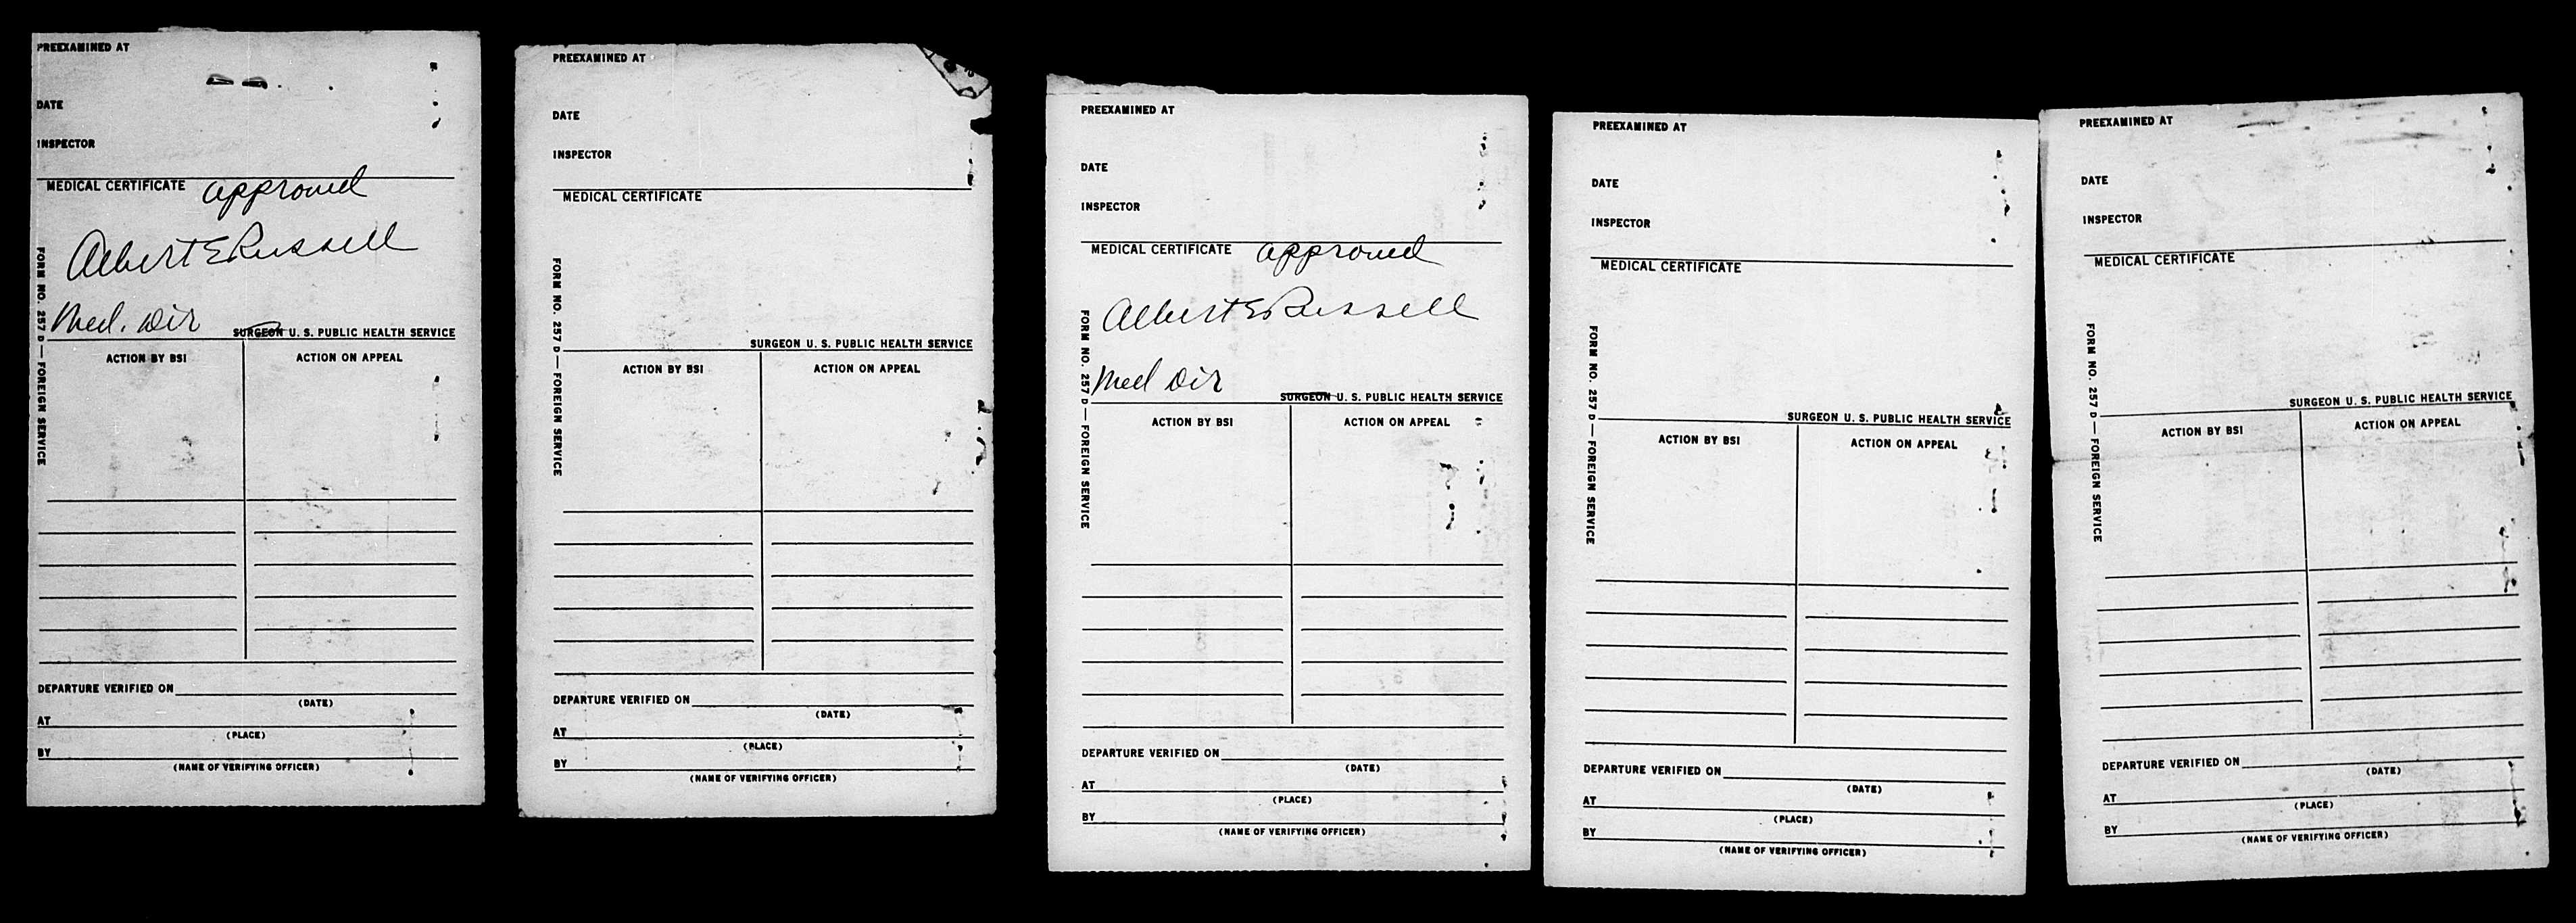 PREEXAMINED AT
DATE
INSPECTOR
MEDICAL CERTIFICATE approved
Albert E Russell
Med. Dir
SURGEON U. S. PUBLIC HEALTH SERVICE
ACTION BY BSI
ACTION ON APPEAL
DEPARTURE VERIFIED ON
(DATE)
AT
(PLACE)
BY
(NAME OF VERIFYING OFFICER)
FORM NO. 257 D — FOREIGN SERVICE
PREEXAMINED AT
DATE
INSPECTOR
MEDICAL CERTIFICATE
SURGEON U. S. PUBLIC HEALTH SERVICE
ACTION BY BSI
ACTION ON APPEAL
DEPARTURE VERIFIED ON
(DATE)
AT
(PLACE)
BY
(NAME OF VERIFYING OFFICER)
FORM NO. 257 D — FOREIGN SERVICE
PREEXAMINED AT
DATE
INSPECTOR
MEDICAL CERTIFICATE approved
Albert E Russell
Med Dir
SURGEON U. S. PUBLIC HEALTH SERVICE
ACTION BY BSI
ACTION ON APPEAL
DEPARTURE VERIFIED ON
(DATE)
AT
(PLACE)
BY
(NAME OF VERIFYING OFFICER)
FORM NO. 257 D — FOREIGN SERVICE
PREEXAMINED AT
DATE
INSPECTOR
MEDICAL CERTIFICATE
SURGEON U. S. PUBLIC HEALTH SERVICE
ACTION BY BSI
ACTION ON APPEAL
DEPARTURE VERIFIED ON
(DATE)
AT
(PLACE)
BY
(NAME OF VERIFYING OFFICER)
FORM NO. 257 D — FOREIGN SERVICE
PREEXAMINED AT
DATE
INSPECTOR
MEDICAL CERTIFICATE
SURGEON U. S. PUBLIC HEALTH SERVICE
ACTION BY BSI
ACTION ON APPEAL
DEPARTURE VERIFIED ON
(DATE)
AT
(PLACE)
BY
(NAME OF VERIFYING OFFICER)
FORM NO. 257 D — FOREIGN SERVICE